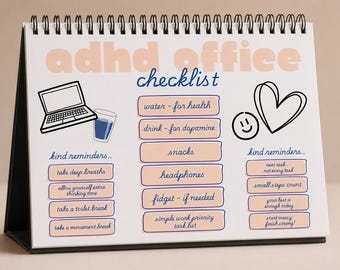 adhd office
checklist
water - for health
drink - for dopamine
snacks
headphones
fidget - if needed
simple work priority
task list
kind reminders...
take deep breaths
allow yourself extra
thinking time
take a toilet break
take a movement break
kind reminders...
next task,
not every task
small steps count
your best is
enough today
start messy,
finish strong!